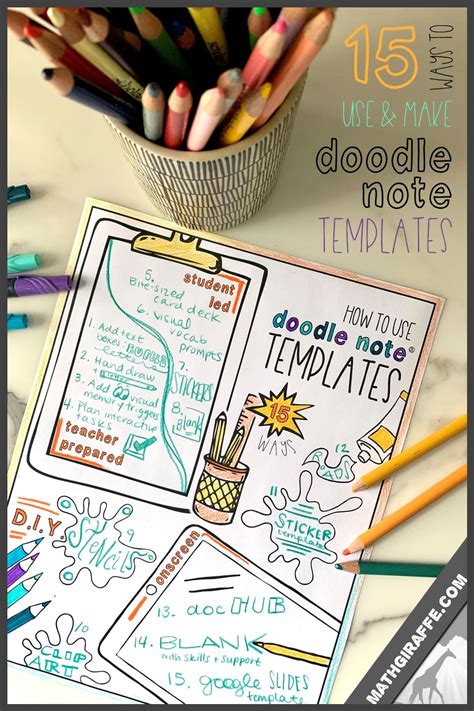 15 WAYS TO
USE & MAKE
doodle
note
TEMPLATES
HOW TO USE
doodle note®
TEMPLATES
15
WAYS
student
led
5. Bite-sized
card deck
6. visual
vocab
prompts
7. STICKERS
8. Blank
1. Add text
boxes, BORDERS
letters
2. Hand draw
+ letter
3. Add visual
memory triggers
4. Plan interactive
tasks
teacher
prepared
D.I.Y.
9
Stencils
10
CLIP
ART
11
STICKER
templates
12
onscreen
13. doc HUB
14. BLANK
with skills + support
15. google SLIDES
template
MATHGIRAFFE.COM